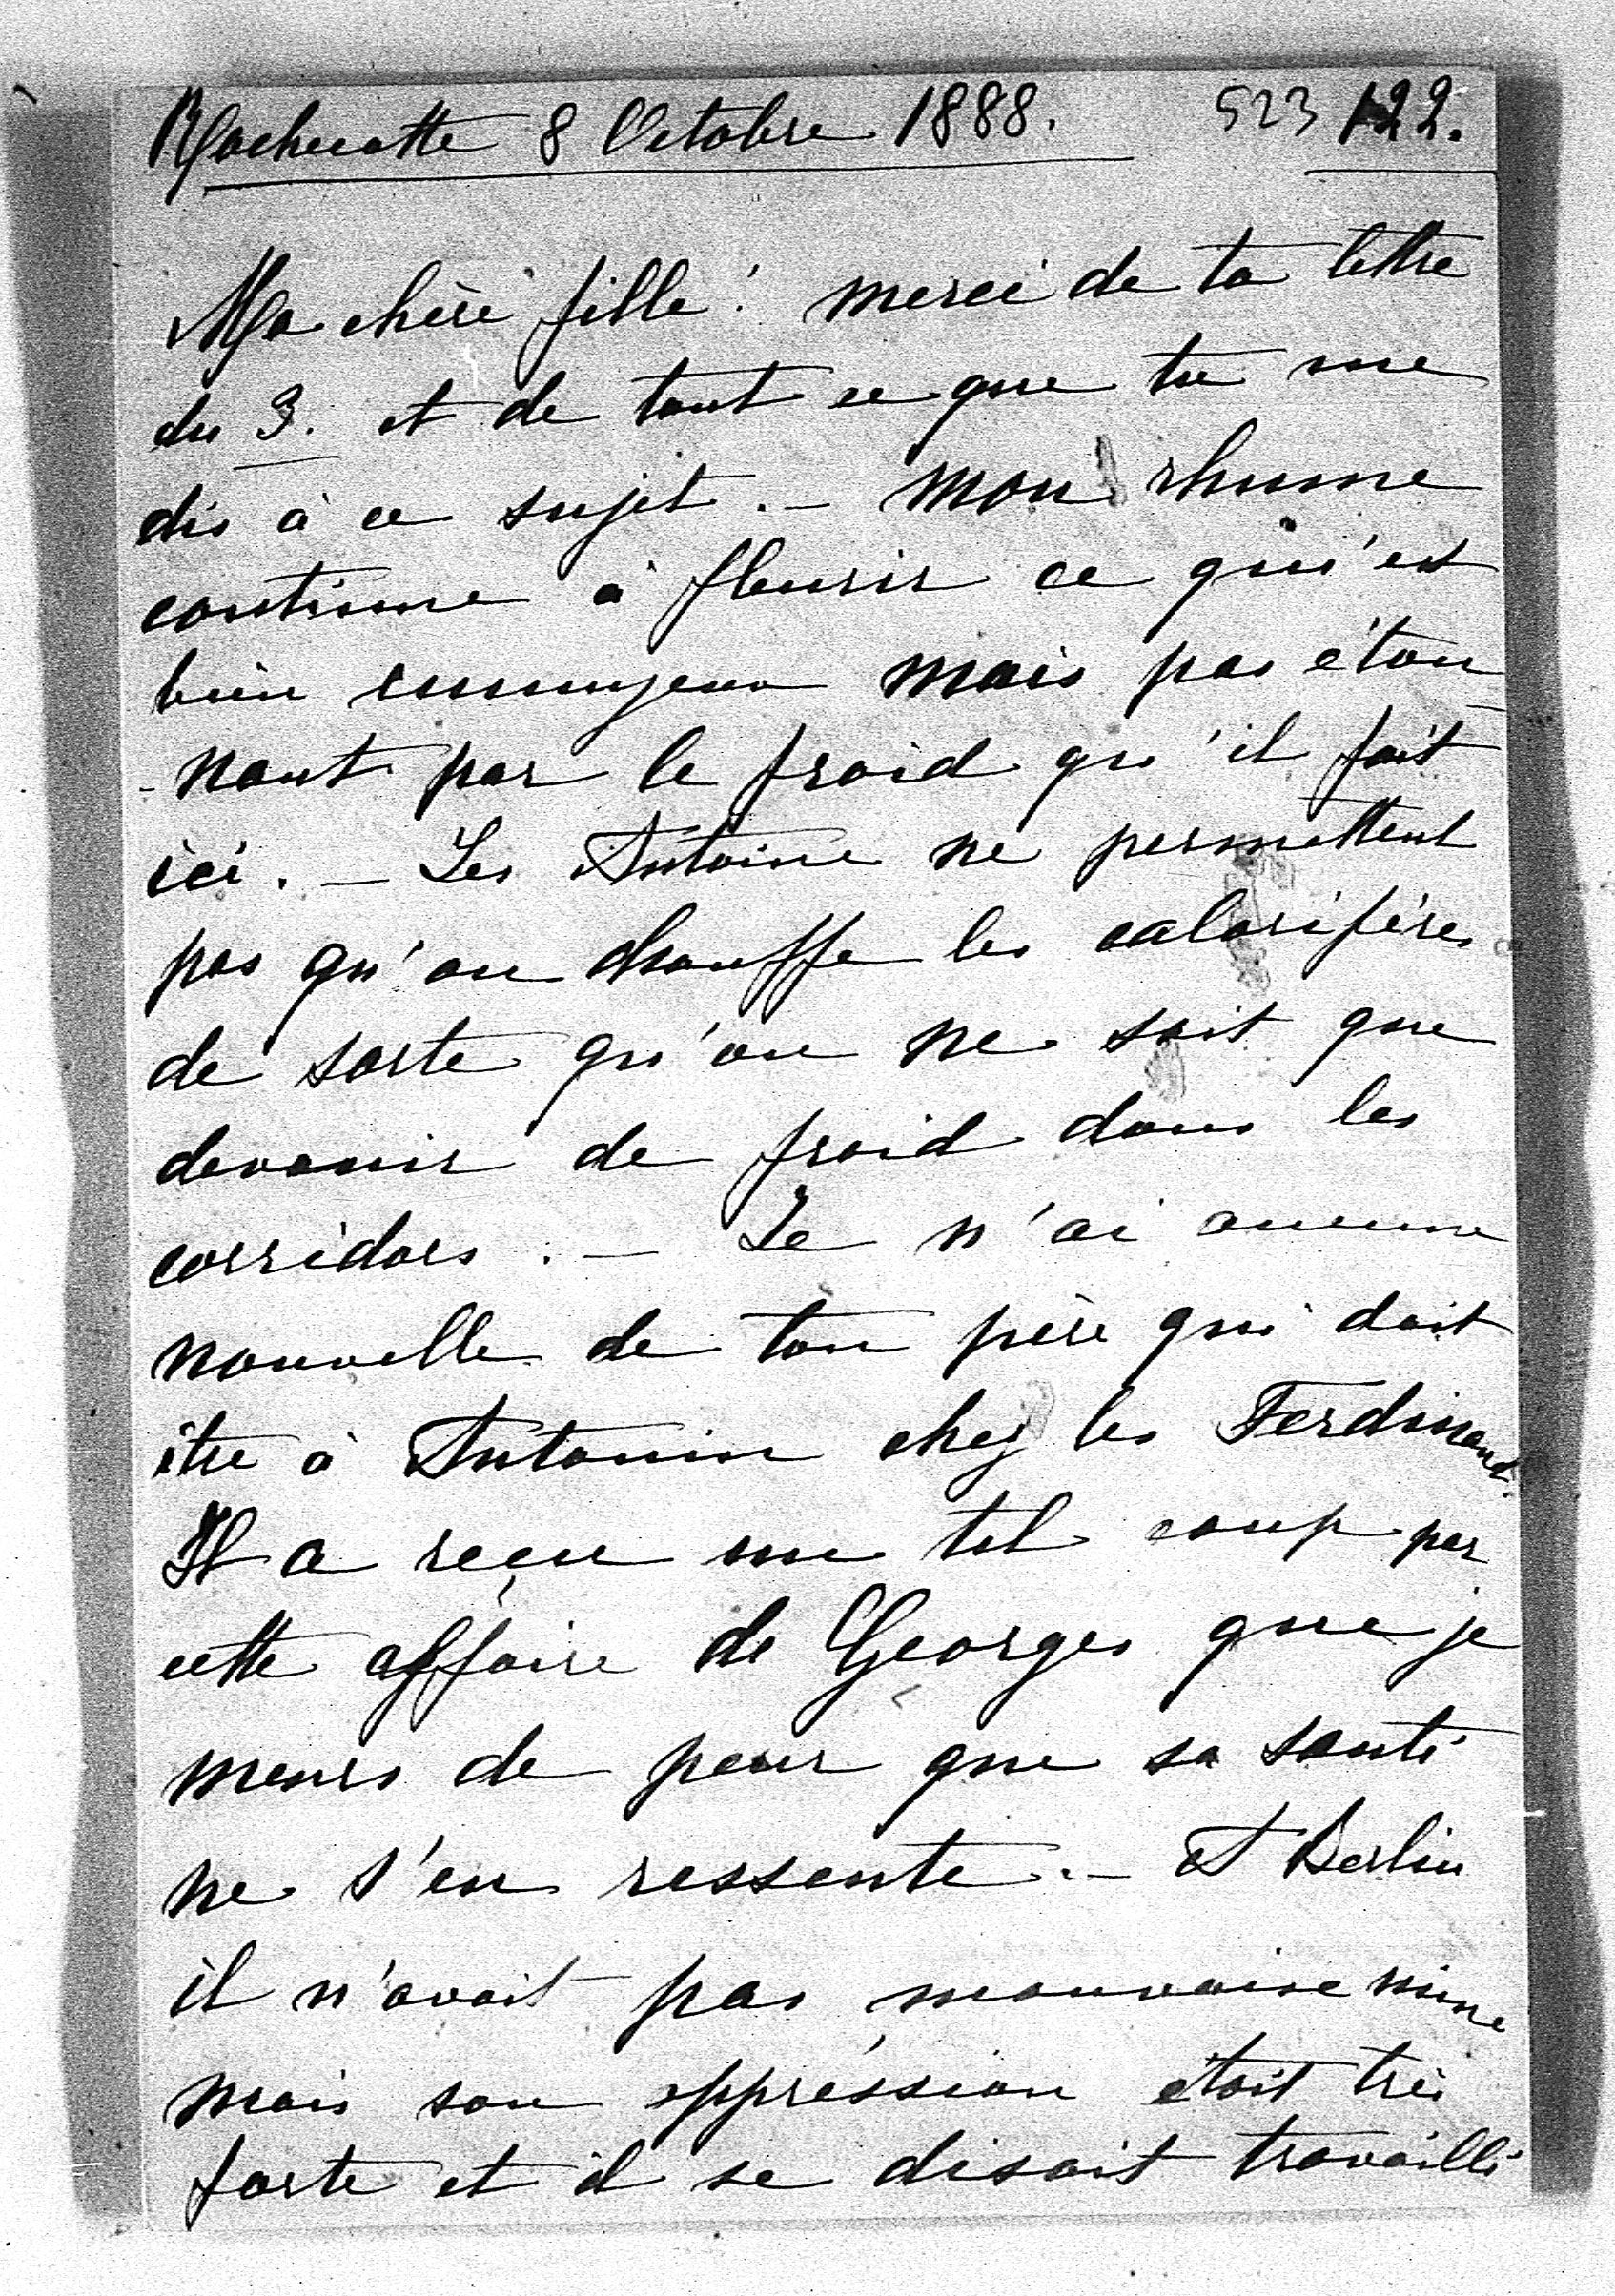 Rochecotte 8 Octobre 1888. 523 122.
Ma chère fille! merci de ta lettre
du 3. et de tout ce que tu me
dis à ce sujet. – Mon rhume
continue à fleurir ce qui est
bien ennuyeux mais pas éton
-nant par le froid qu'il fait
ici. – Les Antoine ne permettent
pas qu'on chauffe les calorifères
de sorte qu'on ne sait que
devenir de froid dans les
corridors. – Je n'ai aucune
nouvelle de ton père qui doit
être à Antonin chez les Ferdinand.
Il a reçu un tel coup par
cette affaire de Georges que je
meurs de peur que sa santé
ne s'en ressente. – A Berlin
il n'avait pas mauvaise mine
mais son oppression était très
forte et il se disait travaillé